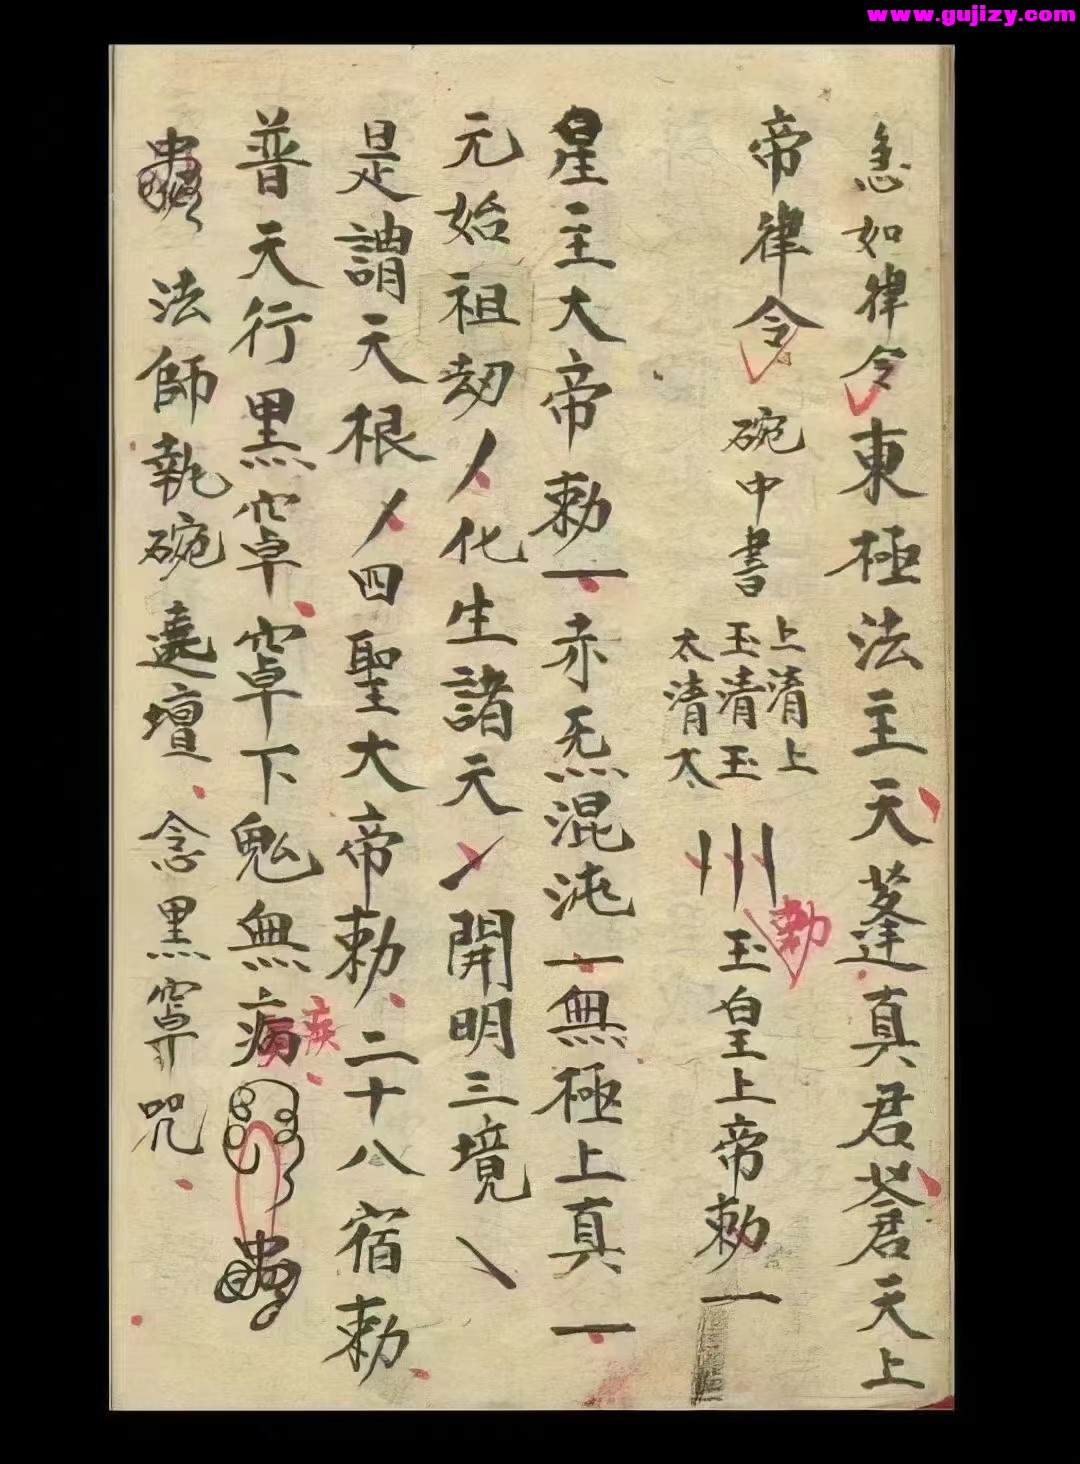 www.gujizy.com
急如律令東極法主天蓬真君蒼天上
帝律令碗中書
上清上
玉清玉
太清太
勅
玉皇上帝勅一
星主大帝勅一赤炁混沌一無極上真一
元始祖劫丿化生諸天丿開明三境㇏
是謂天根丿四聖大帝勅二十八宿勅
普天行黑窣窣下鬼無病
疾
法師執碗遶壇念黑窣咒